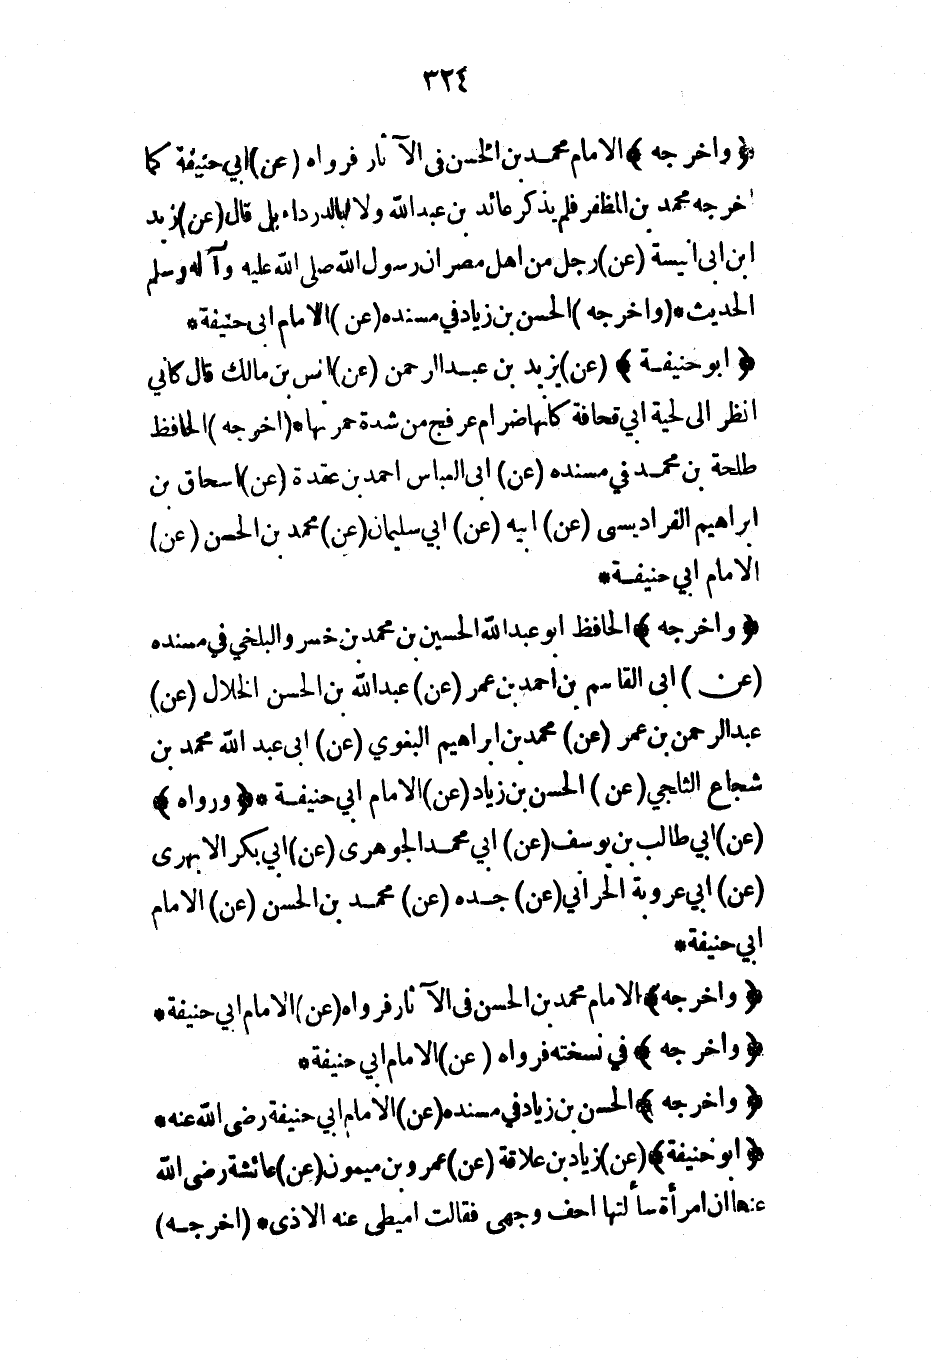 ٣٢٤
﴿ واخرجه ﴾ الامام محمد بن الحسن فى الآثار فرواه ( عن ) ابي حنيفة كما
اخرجه محمد بن المظفر فلم يذكر عائذ بن عبدالله ولا ابالدرداء بل قال (عن) زيد
ابن ابى انيسة (عن) رجل من اهل مصر ان رسول الله صلى الله عليه وآله وسلم
الحديث * (واخرجه ) الحسن بن زياد في مسنده (عن ) الامام ابى حنيفة *
﴿ ابو حنيفة ﴾ (عن) يزيد بن عبدالرحمن (عن) انس بن مالك قال كاني
انظر الى لحية ابي قحافة كانها ضرام عرفج من شدة حمرتها * (اخرجه ) الحافظ
طلحة بن محمد في مسنده (عن) ابى العباس احمد بن عقدة (عن) اسحاق بن
ابراهيم الفراديسى (عن) ابيه (عن) ابي سليمان (عن) محمد بن الحسن (عن)
الامام ابي حنيفة *
﴿ واخرجه ﴾ الحافظ ابو عبدالله الحسين بن محمد بن خسرو البلخي في مسنده
(عن ) ابى القاسم بن احمد بن عمر (عن) عبدالله بن الحسن الخلال (عن)
عبدالرحمن بن عمر (عن) محمد بن ابراهيم البغوي (عن) ابى عبد الله محمد بن
شجاع الثلجي (عن ) الحسن بن زياد (عن) الامام ابي حنيفة * ﴿ ورواه ﴾
(عن) ابي طالب بن يوسف (عن) ابي محمد الجوهرى (عن) ابي بكر الابهرى
(عن) ابي عروبة الحراني (عن) جده (عن) محمد بن الحسن (عن) الامام
ابي حنيفة *
﴿ واخرجه ﴾ الامام محمد بن الحسن فى الآثار فرواه (عن) الامام ابي حنيفة *
﴿ واخرجه ﴾ في نسخته فرواه ( عن) الامام ابي حنيفة *
﴿ واخرجه ﴾ الحسن بن زياد في مسنده (عن) الامام ابي حنيفة رضى الله عنه *
﴿ ابو حنيفة ﴾ (عن) زياد بن علاقة (عن) عمرو بن ميمون (عن) عائشة رضى الله
عنها ان امرأة سألتها احف وجهى فقالت اميطى عنه الاذى * (اخرجه)